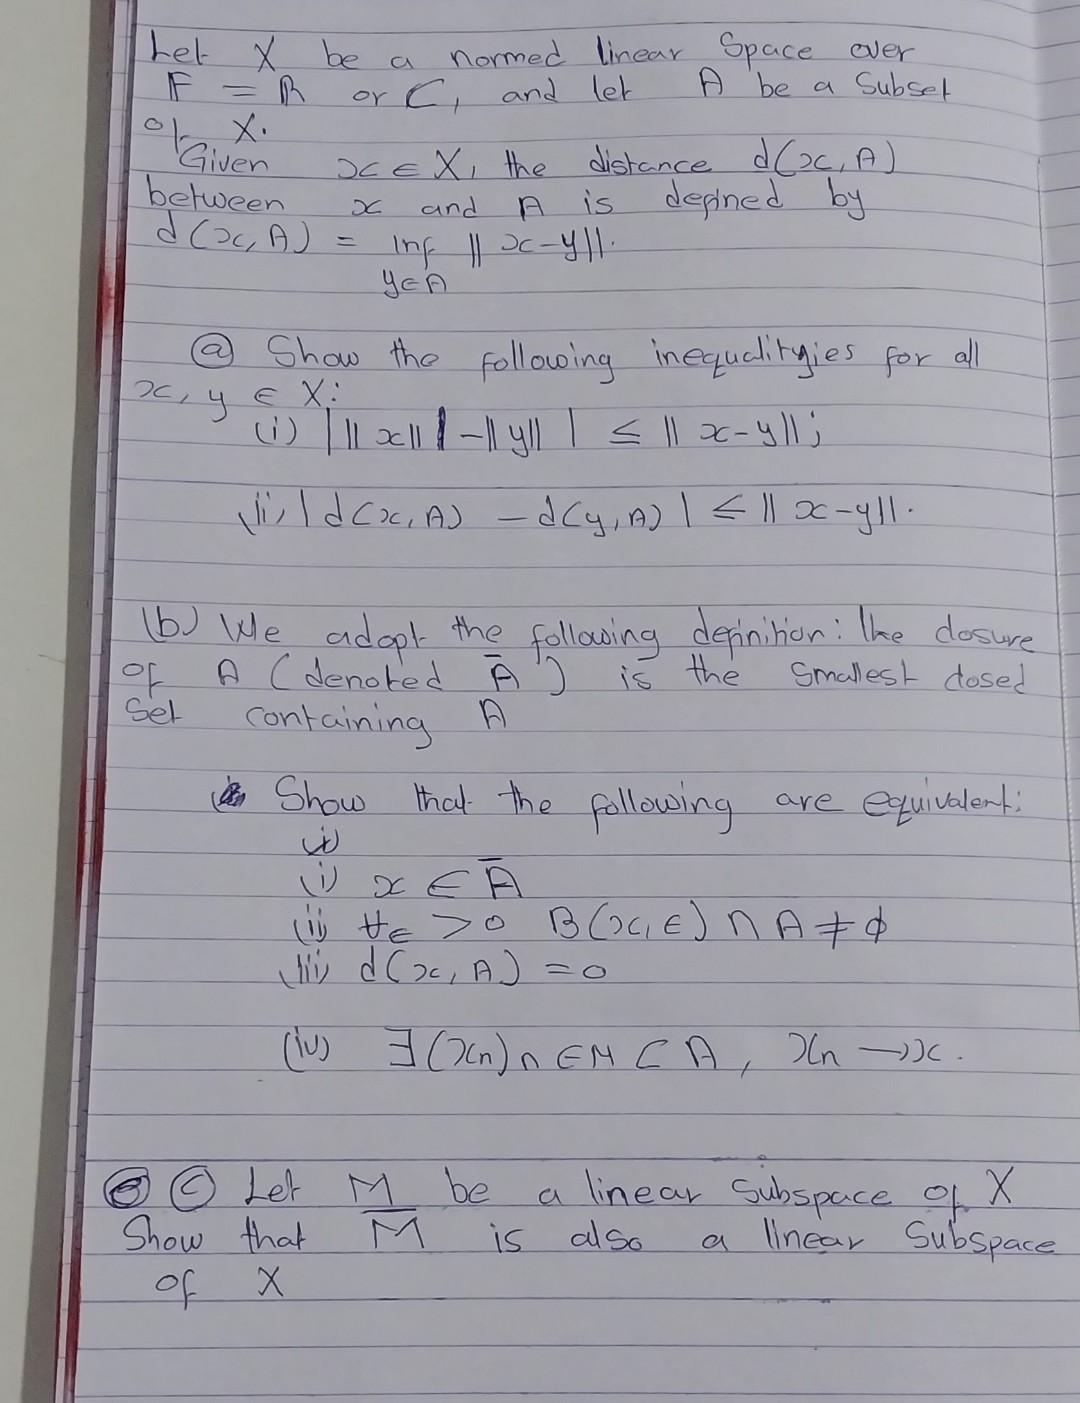 Let X be a normed linear Space over
F = R or C, and let A be a Subset
of X.
Given x ∈ X, the distance d(x, A)
between x and A is defined by
d(x, A) = inf || x-y||.
y∈A
(a) Show the following inequalitgies for all
x, y ∈ X:
(i) | ||x|| - ||y|| | ≤ || x-y||;
(ii) | d(x, A) - d(y, A) | ≤ || x-y||.
(b) We adopt the following definition: the closure
of A (denoted A̅) is the smallest closed
Set containing A
Show that the following are equivalent:
(i) x ∈ A̅
(ii) ∀ε > 0 B(x, ε) ∩ A ≠ ϕ
(iii) d(x, A) = 0
(iv) ∃(xn)n ∈ N ⊂ A, xn → x.
(c) Let M be a linear Subspace of X
Show that M̅ is also a linear Subspace
of X